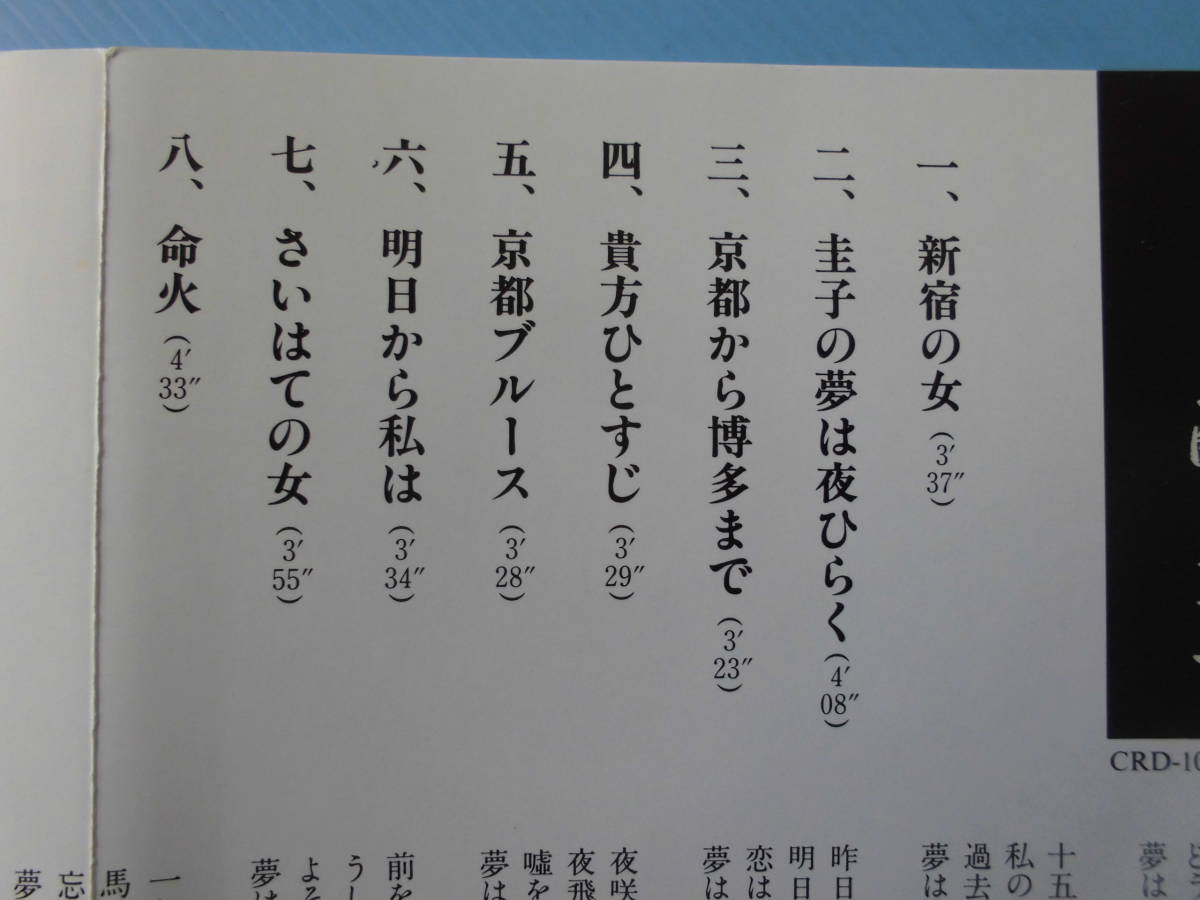 一、新宿の女（3′37″）
二、圭子の夢は夜ひらく（4′08″）
三、京都から博多まで（3′23″）
四、貴方ひとすじ（3′29″）
五、京都ブルース（3′28″）
六、明日から私は（3′34″）
七、さいはての女（3′55″）
八、命火（4′33″）
CRD-10
夢は
十五
私の
過去
夢は
昨日
明日
恋は
夢は
夜咲
夜飛
嘘を
夢は
前を
うし
よそ
夢は
一
馬
忘
夢